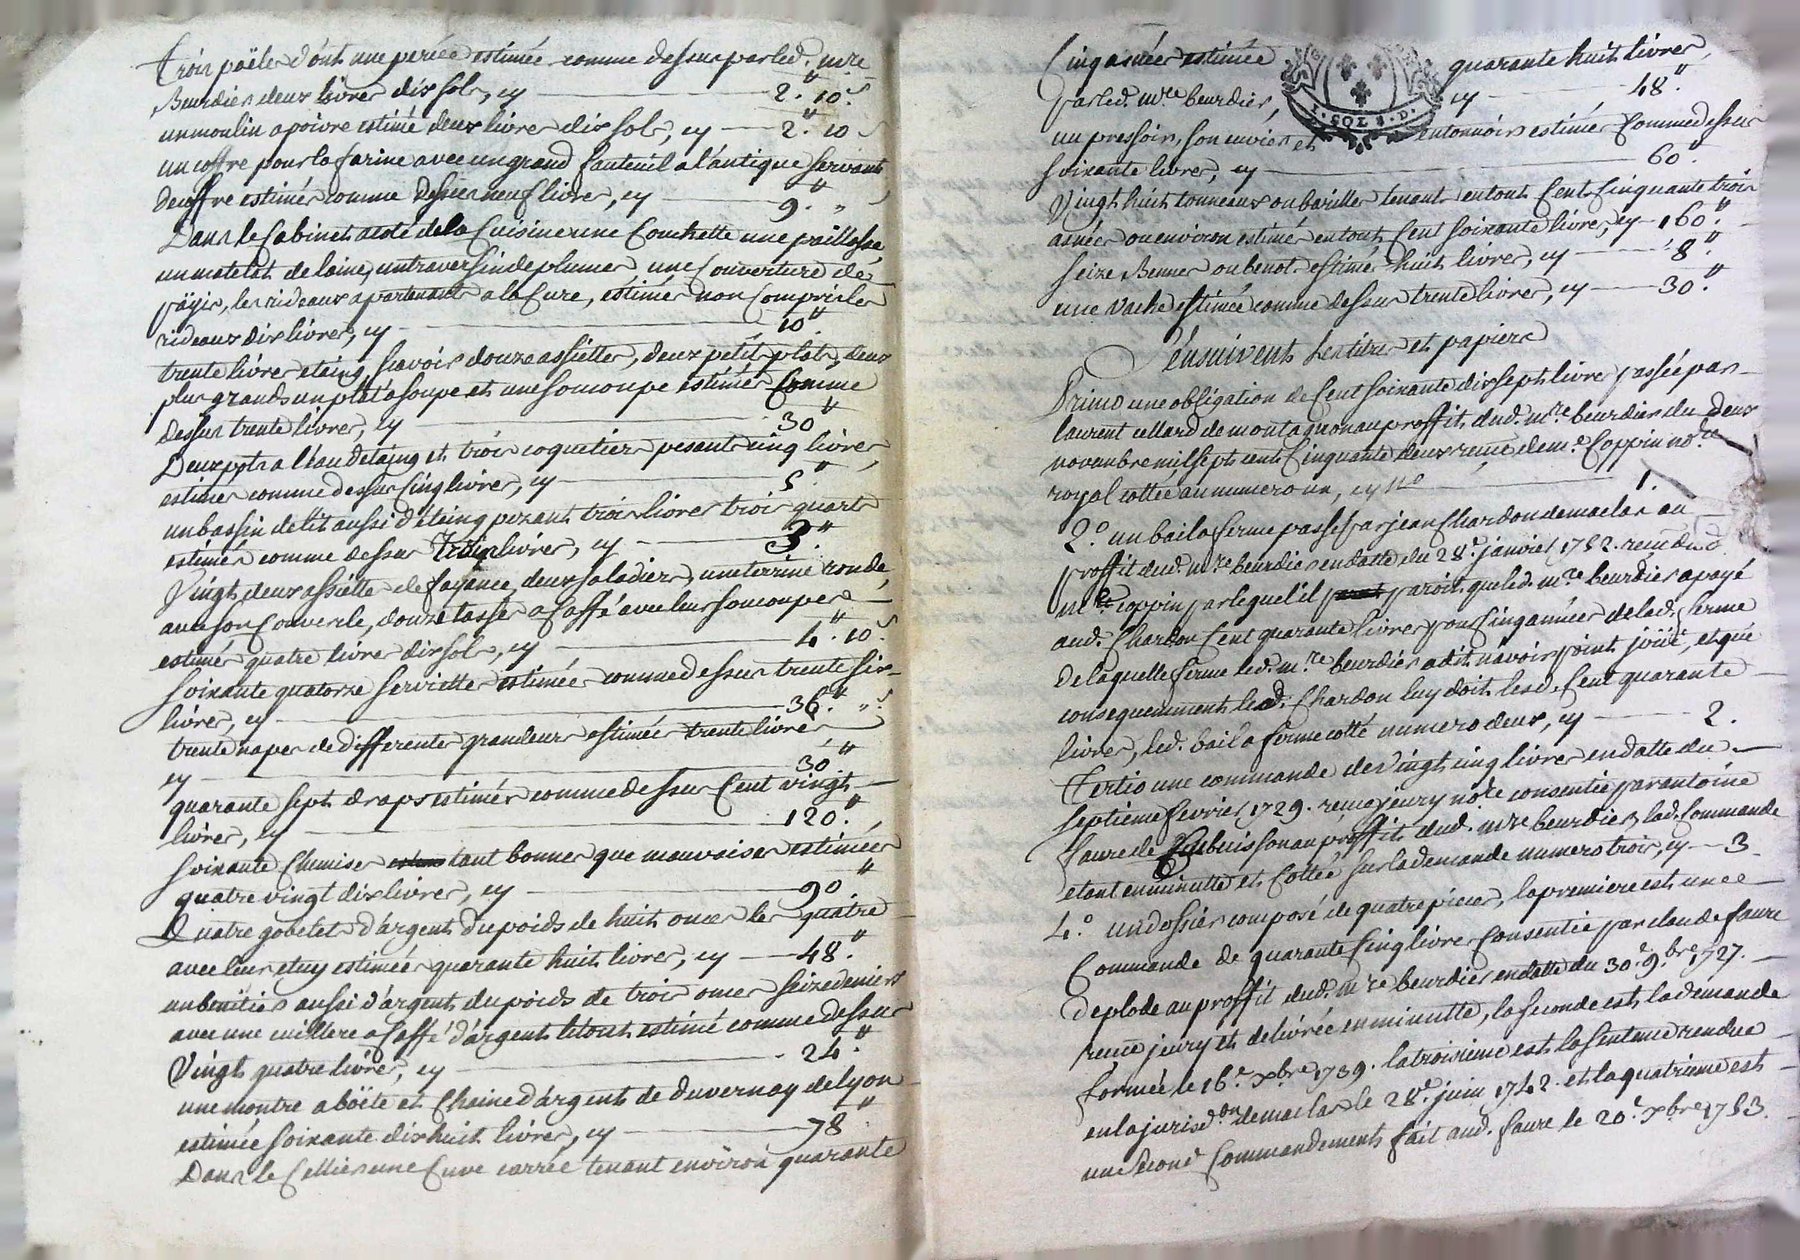 Trois poëles dont une percée estimée comme dessus par led. mre
Beurdier deux livres dix sols, cy 2." 10.s
un moulin a poivre estimé deux livres dix sols, cy 2." 10 s
un coffre pour la farine avec un grand fauteuil a l'antique servant
de coffre estimés comme dessus neuf livres, cy 9." "
Dans le Cabinet a coté de la Cuisine une Couchette une paillasse
un matelat de laine, un traversin de plumes, une Couverture de
païis, les rideaux apartenants a la Cure, estimés non Compris les
rideaux dix livres, cy 10."
trente livres eteing, scavoir douze assiettes, deux petit plats, deux
plus grands un plat a soupe et une soucoupe estimés Comme
dessus trente livres, cy 30"
Deux pots a l'eau detaing et trois coquetiers pesants cinq livres
estimés comme dessus Cinq livres, cy 5."
un bassin de lit aussi d'eteing pezant trois livres trois quarts
estimés comme dessus trois livres, cy 3."
Vingt deux assiette de fayance, deux saladiers, une terrine ronde,
avec son Couvercle, douze tasses a Caffé avec leurs soucoupes
estimés quatre livres dix sols, cy 4." 10.s
soixante quatorze serviettes estimées comme dessus trente six
livres, cy 36." ".s
trente napes de differente grandeurs estimées trente livres,
cy 30"
quarante sept draps estimés comme dessus Cent vingt
livres, cy 120."
soixante Chemises tant bonnes que mauvaises estimées
quatre vingt dix livres, cy 90."
Quatre gobelets d'argent du poids de huit onces les quatre
avec leur etuy estimés quarante huit livres, cy 48."
un benitier aussi d'argent du poids de trois onces seize deniers
avec une cuillere a Caffé d'argent le tout estimé comme dessus
Vingt quatre livres, cy 24."
une montre a boëte et Chaine d'argent de duvernay de lyon
estimée soixante dix huit livres, cy 78"
Dans le Cellier une Cuve carrée tenant environ quarante
Cinq asnées estimée quarante huit livres
par led. mre beurdier, cy 48."
COL
un pressoir, son cuvier et entonnoir estimés Comme dessus
soixante livres, cy 60."
Vingt huit tonneaux ou barilles tenants en tout Cent Cinquante trois
asnées ou environ estimés en tout Cent soixante livres, cy 160."
seize Bennes ou benots estimés huit livres, cy 8."
une Vache estimée comme dessus trente livres, cy 30."
S'ensuivents les titres et papiers
Primo une obligation de Cent soixante dix sept livres passée par
laurent cellard de montagnon au proffit dud. mre beurdier du deux
novembre mil sept cent Cinquante deux receue de me. Coppin nore
royal cottée au numero un, cy no 1.
2.o un bail a ferme passé par jean Chardon de maclas au
proffit dud. mre beurdier en datte du 28e janvier 1752. receu dud
me coppin par lequel il paroit que led. mre beurdier a payé
aud. Chardon Cent quarante livres pour Cinq années de lad. ferme
de laquelle ferme led. mre beurdier a dit n'avoir point joüi, et que
consequemment led. Chardon luy doit lesd. Cent quarante
livres, led. bail a ferme cotté numero deux, cy 2.
Tertio une commande de Vingt cinq livres en datte du
septieme fevrier 1729. receu jeury nore consentie par antoine
faure de buisson au proffit dud. mre beurdier, lad. Commande
etant en minutte et Cottée sur la demande numero trois, cy 3
4.o un dossier composé de quatre pieces, la premiere est une
Commande de quarante Cinq livres Consentie par claude faure
deplode au proffit dud. mre beurdier en datte du 30e 9bre 1727.
receue jeury et delivrée en minutte, la seconde est la demande
formée le 16e xbre 1739. la troisieme est la sentence rendue
en la jurisdon de maclas le 28e juin 1742. et la quatrieme est
une second Commandement fait aud. faure le 20e xbre 1753.